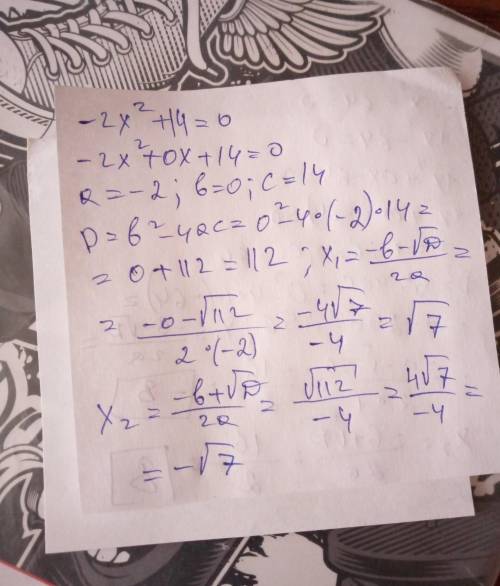 -2x² + 14 = 0
-2x² + 0x + 14 = 0
a = -2 ; b = 0 ; c = 14
D = b² - 4ac = 0² - 4·(-2)·14 =
= 0 + 112 = 112 ; x₁ = (-b - √D)/2a =
= (-0 - √112)/(2·(-2)) = (-4√7)/(-4) = √7
x₂ = (-b + √D)/2a = √112/(-4) = 4√7/(-4) =
= -√7